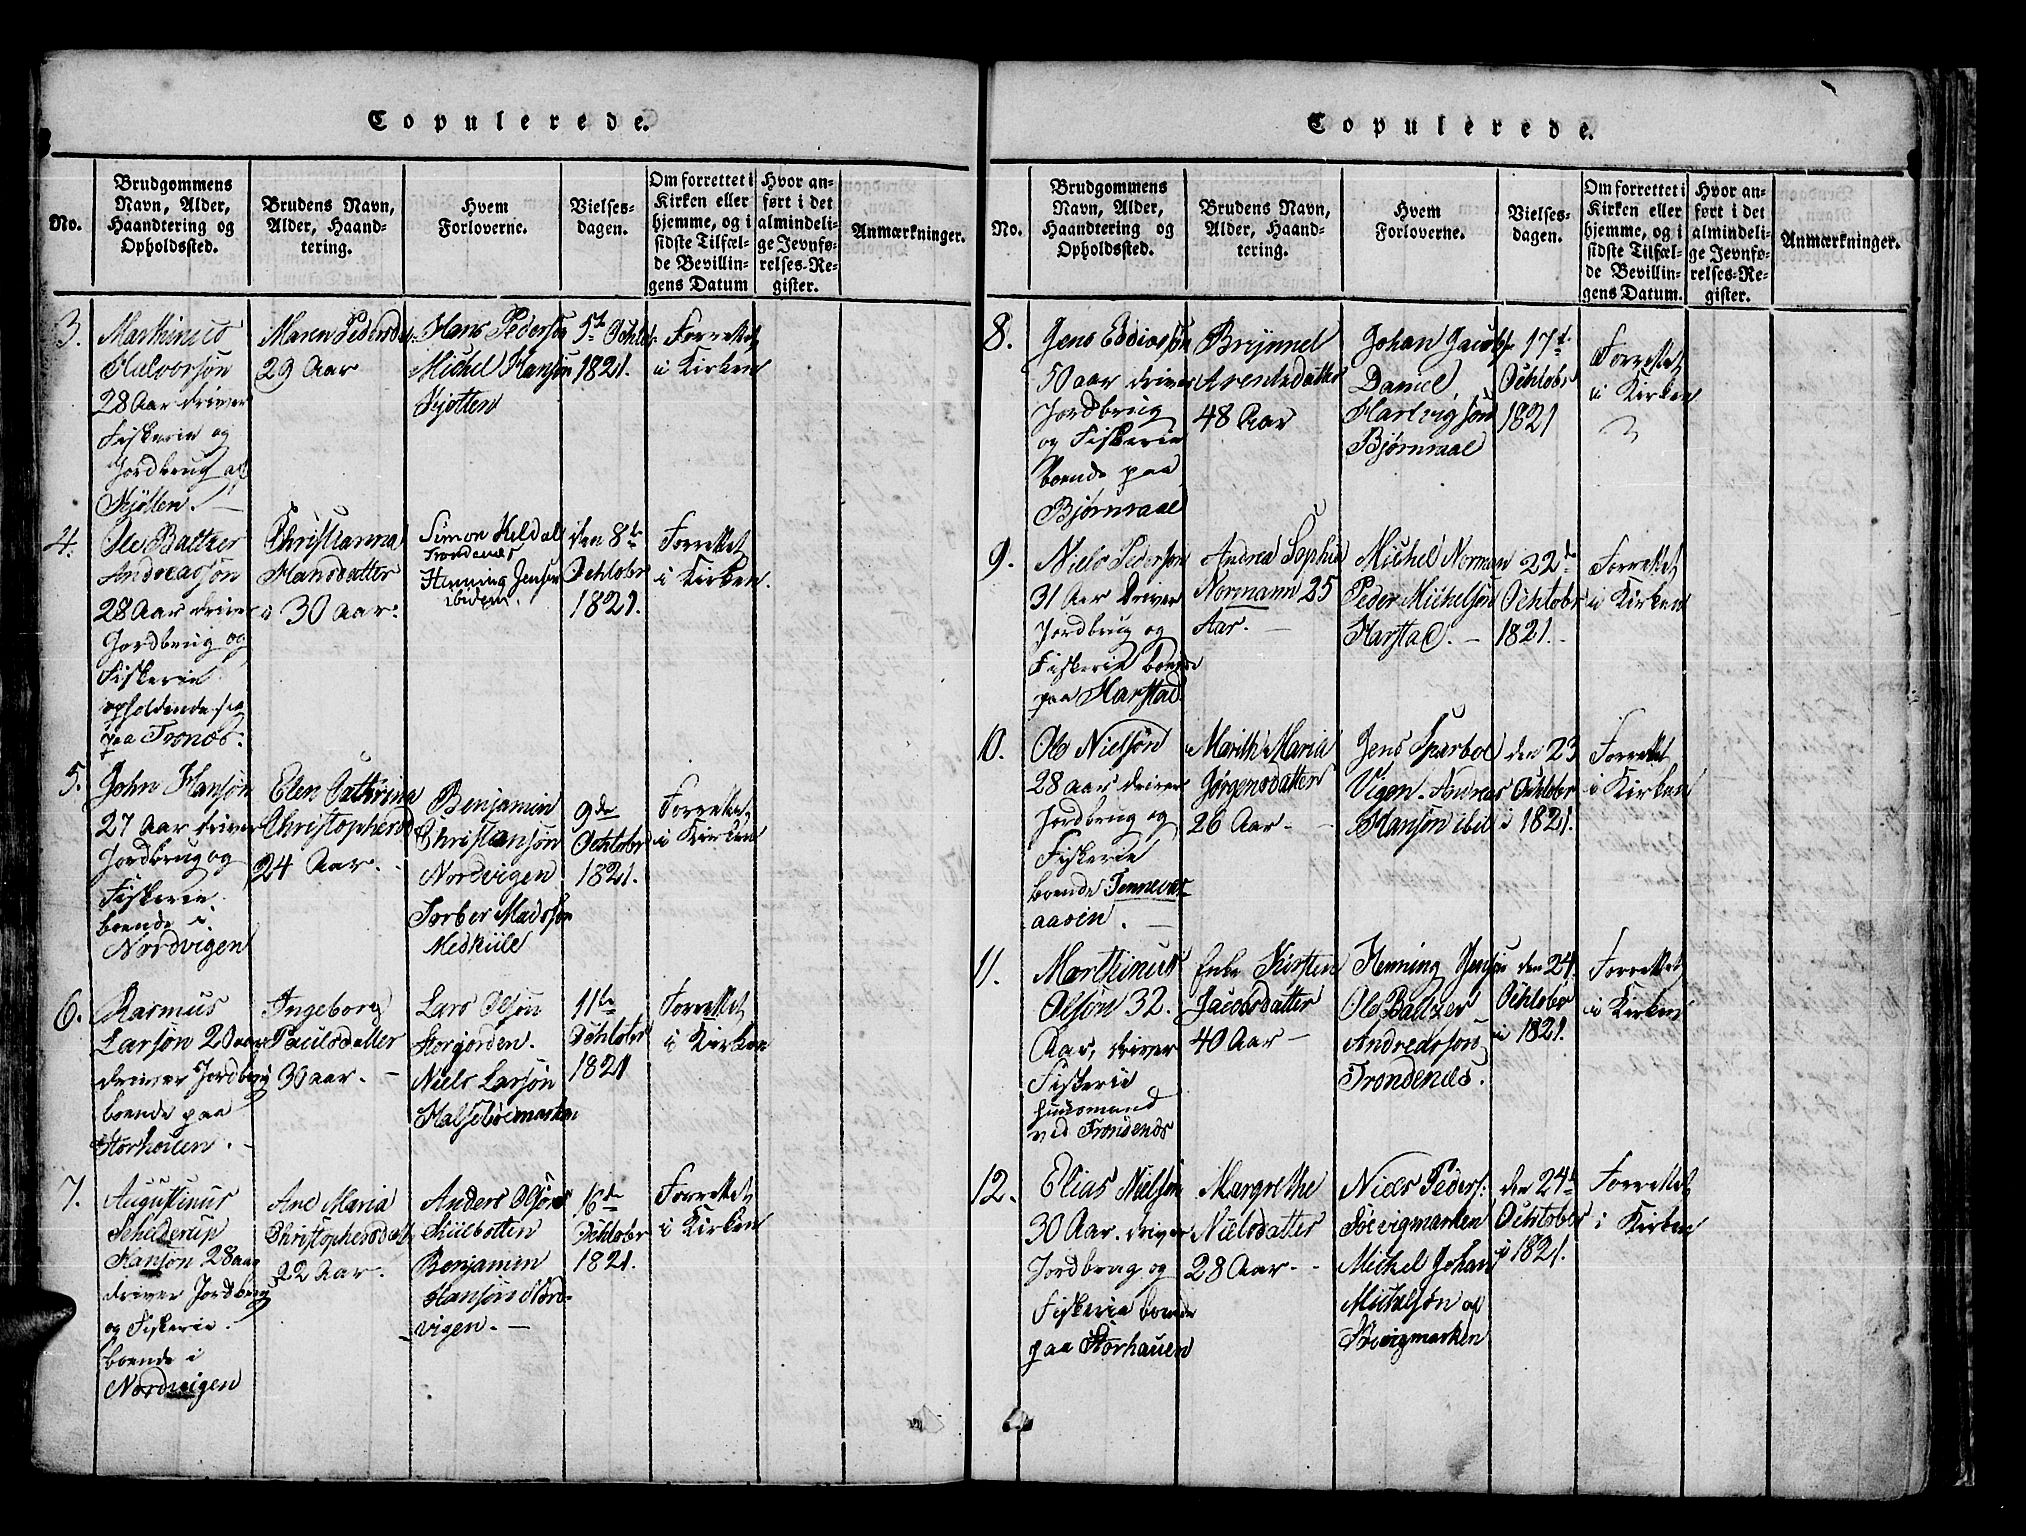 Copulerede.
No.
Brudgommens
Navn, Alder,
Haandtering og
Opholdssted.
Brudens Navn,
Alder, Haand-
tering.
Hvem
Forloverne.
Vielses-
dagen.
Om forrettet i
Kirken eller
hjemme, og i
sidste Tilfæl-
de Bevillin-
gens Datum
Hvor an-
ført i det
almindeli-
ge Jevnfø-
relses-Re-
gister.
Anmærkninger.
3.
Halvorsøn
28 Aar driver
Fiskerie og
Jordbrug af
Kjøtten.
Maren Pedersdat
29 Aar
Hans Pedersøn
Michel Hansøn
Kjøtten
5te Ochtobr
1821.
Forrettet
i Kirken
4.
Ole Baltzer
Andreassøn
28 Aar driver
Jordbrug og
Fiskerie
opholdende sig
paa Tronæs.
Christianna
Hansdatter
30 Aar.
Simon Kildal
Trondenæs
Henning Jensen
ibidem.
den 8te
Ochtobr
1821.
Forrettet
i Kirken.
5.
John Hansøn
27 Aar driver
Jordbrug og
Fiskerie.
boende i
Nordvigen
Elen Cathrina
Christophersd
24 Aar.
Benjamin
Christiansøn
Nordvigen
Torber Madssøn
Medkiile
9de
Ochtobr
1821.
Forrettet
i Kirken
6.
Rasmus
Larsøn 20 aar
driver Jordbrug
boende paa
Storhauen.
Ingeborg
Paulsdatter
30 aar.
Lars Olsøn
Storjorden.
Niels Larsøn
Halsebøemarken
11te
Ochtobr
1821
Forrettet
i Kirken
7.
Augustinus
Schielderup
Hansøn 28 aar
driver Jordbrug
og Fiskerie.
boende i
Nordvigen
Ane Maria
Christophersdatt
22 Aar.
Anders Olsøn
Kiilbotten
Benjamin
Hansøn Nord-
vigen.
16de
Ochtobr
1821.
Forrettet
i Kirken
Copulerede.
No.
Brudgommens
Navn, Alder,
Haandtering og
Opholdssted.
Brudens Navn,
Alder, Haand-
tering.
Hvem
Forloverne.
Vielses-
dagen.
Om forrettet i
Kirken eller
hjemme, og i
sidste Tilfæl-
de Bevillin-
gens Datum.
Hvor an-
ført i det
almindeli-
ge Jevnfø-
relses-Re-
gister.
Anmærkninger.
8.
Jens
50 aar driver
Jordbrug
og Fiskerie
boende paa
Bjørnraae
Brynnel
Arentsdatter
48 Aar
Johan Jacobs
Daniel
Hartvigsøn
Bjørnraae
17de
Ochtobr
1821
Forrettet
i Kirken
9.
Niels Pedersøn
31 Aar Driver
Jordbrug og
Fiskerie boende
paa Harstad
Andrea Sophia
Normann 25
Aar.
Michel Norman
Peder Michelsøn
Harstad.
22de
Ochtobr
1821.
Forrettet
i Kirken
10.
Ole Nielsøn
28 aar driver
Jordbrug og
Fiskerie
boende Tennevas-
aasen.
Marith Maria
Jørgensdatter
26 Aar
Jens Sparboe
Vigen. Andreas
Hansøn ibid
den 23
Ochtober
1821.
Forrettet
i Kirken
11.
Marthinus
Olsøn 32.
Aar, driver
Fiskerie
huusmand
ved Trondenæs
Enke Kirsten
Jacobsdatter
40 Aar
Henning Jensen
Ole Baltzer
Andreassøn
Trondenæs.
den 24.
Ochtober
1821.
Forrettet
i Kirken
12.
Elias Nielsøn
30 Aar. driver
Jordbrug og
Fiskerie boende
paa Storhauen
Margrethe
Nielsdatter
28 Aar.
Niels Peders:
Søevigmarken
Michel Johan
Michelsøn af
Søevigmarken
den 24de
Ochtober
1821.
Forrettet
i Kirken